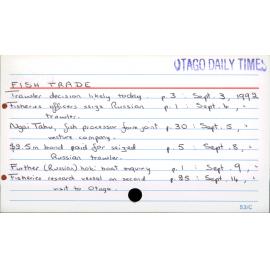 OTAGO DAILY TIMES
FISH TRADE
Trawler decision likely today. p. 3 : Sept. 3, 1992
Fisheries officers seize Russian p. 1 : Sept. 4, "
trawler.
Ngai Tahu, fish processor form joint p. 30 : Sept. 5, "
venture company.
$2.5m bond paid for seized p. 5 : Sept. 8, "
Russian trawler.
Further (Russian) hoki boat inquiry p. 1 : Sept. 9, "
Fisheries research vessel on second p. 25 : Sept. 14, "
visit to Otago.
53/C